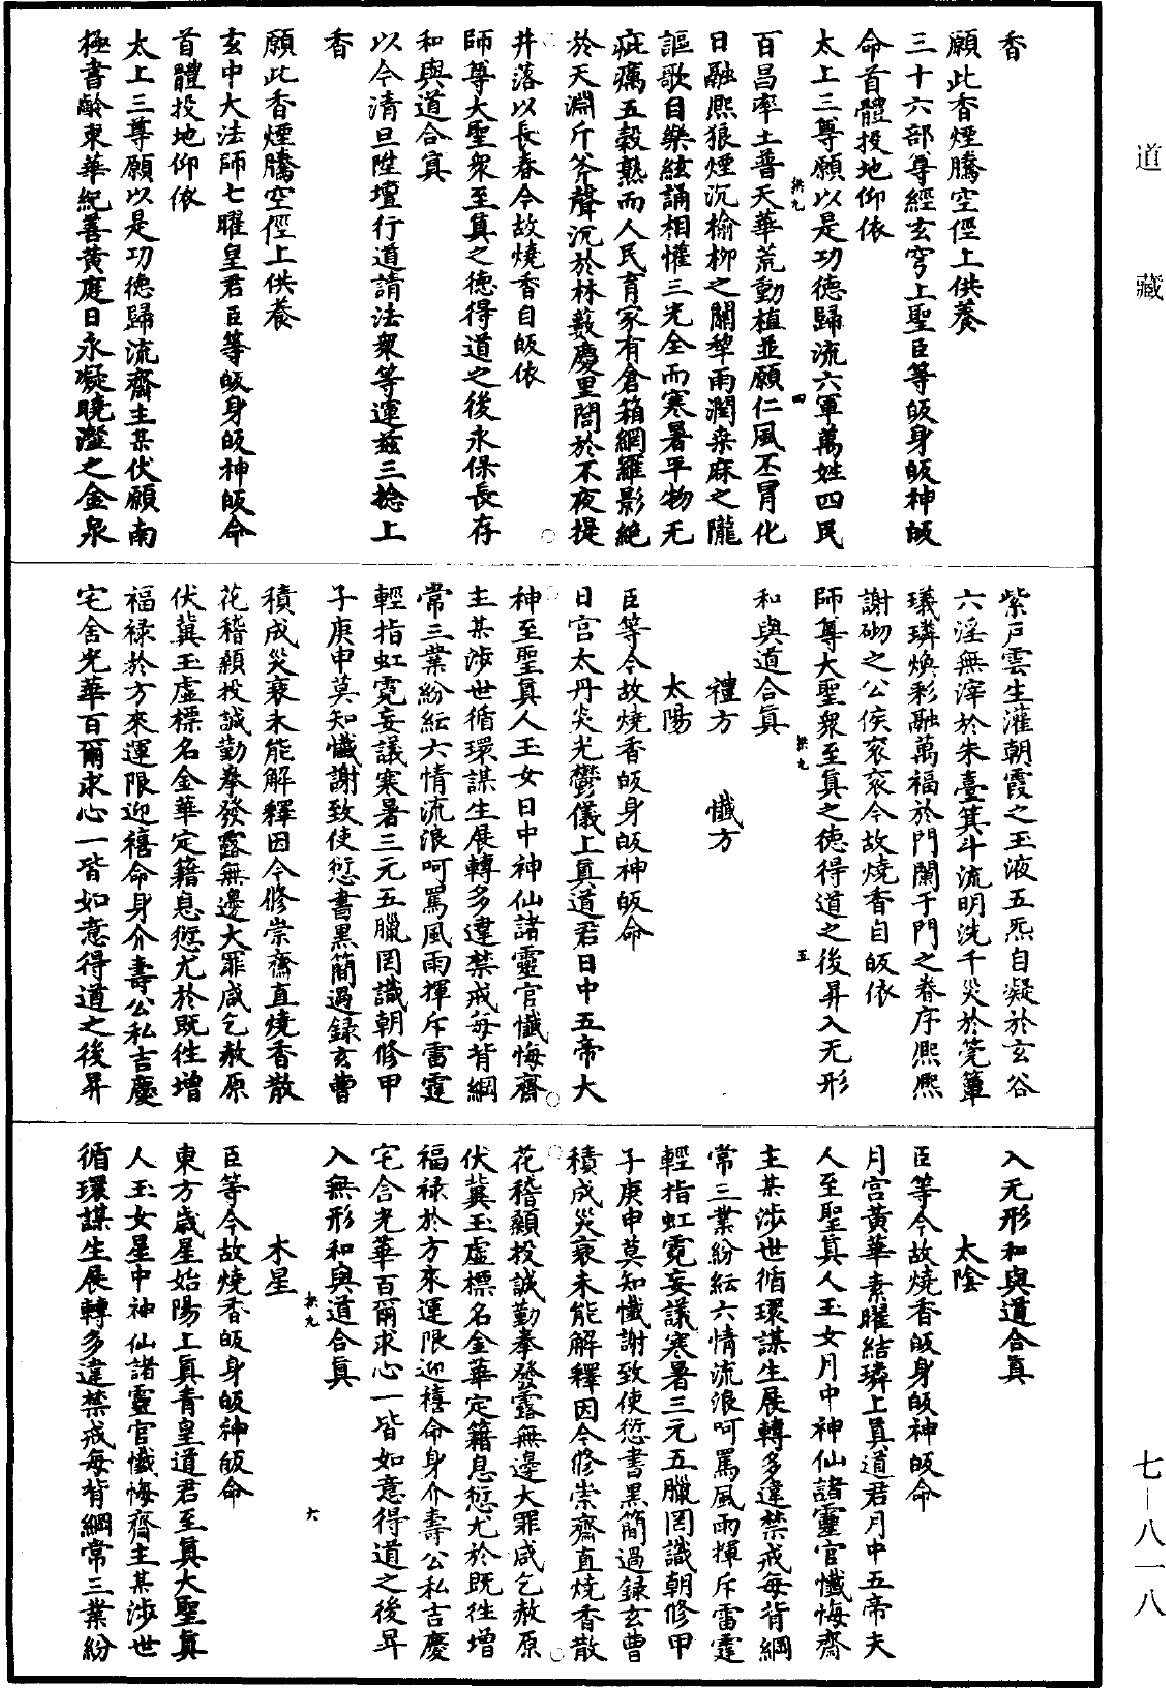 道藏
七—八一八
香
願此香煙騰空徑上供養
三十六部尊經玄穹上聖臣等皈身皈神皈
命首體投地仰依
太上三尊願以是功德歸流六軍萬姓四民
百昌率土普天華荒動植並願仁風丕冐化
拱九
四
日融熙狼煙沉榆柳之關犂雨潤桒麻之隴
謳歌自樂絃誦相懽三光全而寒暑平物无
疵癘五榖熟而人民育家有倉箱網羅影絶
於天淵斤斧聲沉於林藪慶里閭於不夜提
井落以長春今故燒香自皈依
師尊大聖衆至真之德得道之後永保長存
和與道合真
以今清旦陞壇行道請法衆等運兹三捻上
香
願此香煙騰空徑上供養
玄中大法師七曜皇君臣等皈身皈神皈命
首體投地仰依
太上三尊願以是功德歸流齋主某伏願南
極書齡東華紀善黄庭日永凝曉灩之金泉
紫戸雲生灌朝霞之玉液五炁自凝於玄谷
六淫無滓於朱臺箕斗流明洗千災於筦簟
璣璘煥彩融萬福於門闌于門之眷序熙熙
謝砌之公侯衮衮今故燒香自皈依
師尊大聖衆至真之德得道之後昇入无形
拱九
五
和與道合真
禮方 懺方
太陽
臣等今故燒香皈身皈神皈命
日宫太丹炎光鬱儀上真道君日中五帝大
神至聖真人玉女日中神仙諸靈官懺悔齋
主某涉世循環謀生展轉多違禁戒每背綱
常三業紛紜六情流浪呵罵風雨揮斥雷霆
輕指虹霓妄議寒暑三元五臘罔識朝修甲
子庚申莫知懺謝致使愆書黑簡過録玄曹
積成災衰未能解釋因今修崇齋直燒香散
花稽顙投誠勤拳發露無邊大罪咸乞赦原
伏冀玉虛標名金華定籍息愆尤於既徃增
福禄於方來運限迎禧命身介壽公私吉慶
宅舍光華百爾求心一皆如意得道之後昇
入无形和與道合真
太陰
臣等今故燒香皈身皈神皈命
月宫黄華素曜結璘上真道君月中五帝夫
人至聖真人玉女月中神仙諸靈官懺悔齋
主某涉世循環謀生展轉多違禁戒每背綱
常三業紛紜六情流浪呵罵風雨揮斥雷霆
輕指虹霓妄議寒暑三元五臘罔識朝修甲
子庚申莫知懺謝致使愆書黑簡過録玄曹
積成災衰未能解釋因今修崇齋直燒香散
花稽顙投誠勤拳發露無邊大罪咸乞赦原
伏冀玉虛標名金華定籍息愆尤於既徃增
福禄於方來運限迎禧命身介壽公私吉慶
宅舍光華百爾求心一皆如意得道之後昇
入無形和與道合真
拱九
六
木星
臣等今故燒香皈身皈神皈命
東方歳星始陽上真青皇道君至真大聖真
人玉女星中神仙諸靈官懺悔齋主某涉世
循環謀生展轉多違禁戒每背綱常三業紛